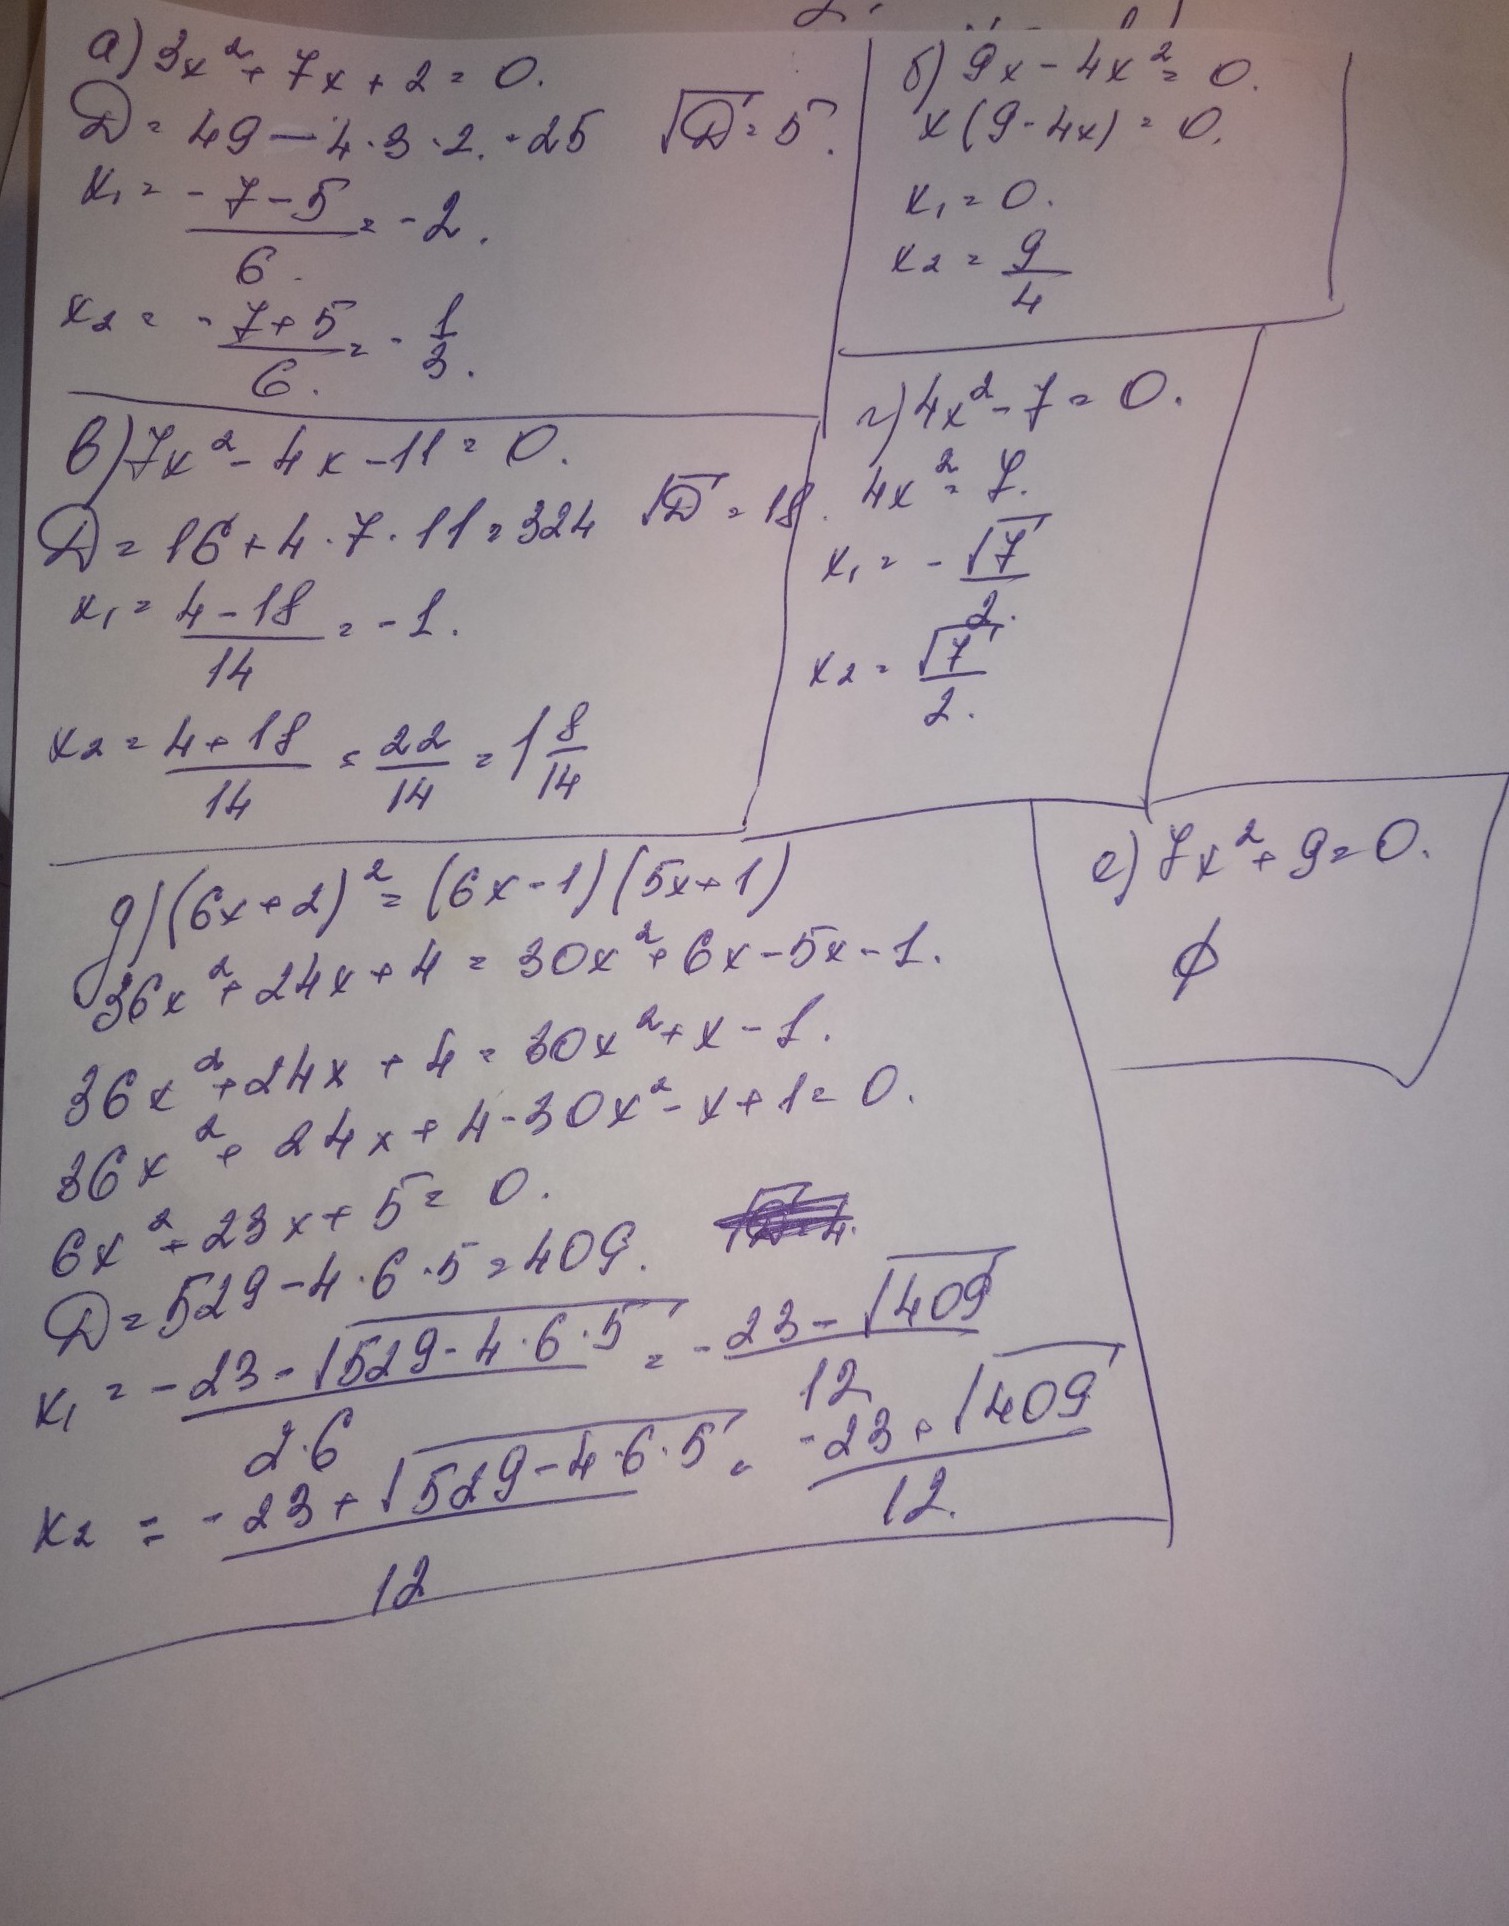 а) 3x² + 7x + 2 = 0.
D = 49 — 4·3·2. = 25 √D = 5.
x₁ = -7-5/6. = -2.
x₂ = -7+5/6. = -1/3.
б) 9x - 4x² = 0.
x(9-4x) = 0.
x₁ = 0.
x₂ = 9/4
в) 7x² - 4x - 11 = 0.
D = 16 + 4·7·11 = 324 √D = 18.
x₁ = 4-18/14 = -1.
x₂ = 4+18/14 = 22/14 = 1 8/14
г) 4x² - 7 = 0.
4x² = 7.
x₁ = -√7/2.
x₂ = √7/2.
д) (6x+2)² = (6x-1)(5x+1)
36x² + 24x + 4 = 30x² + 6x - 5x - 1.
36x² + 24x + 4 = 30x² + x - 1.
36x² + 24x + 4 - 30x² - x + 1 = 0.
6x² + 23x + 5 = 0.
D = 529 - 4·6·5 = 409.
x₁ = -23-√529-4·6·5/2·6 = -23-√409/12
x₂ = -23+√529-4·6·5/12 = -23+√409/12.
е) 7x² + 9 = 0.
∅